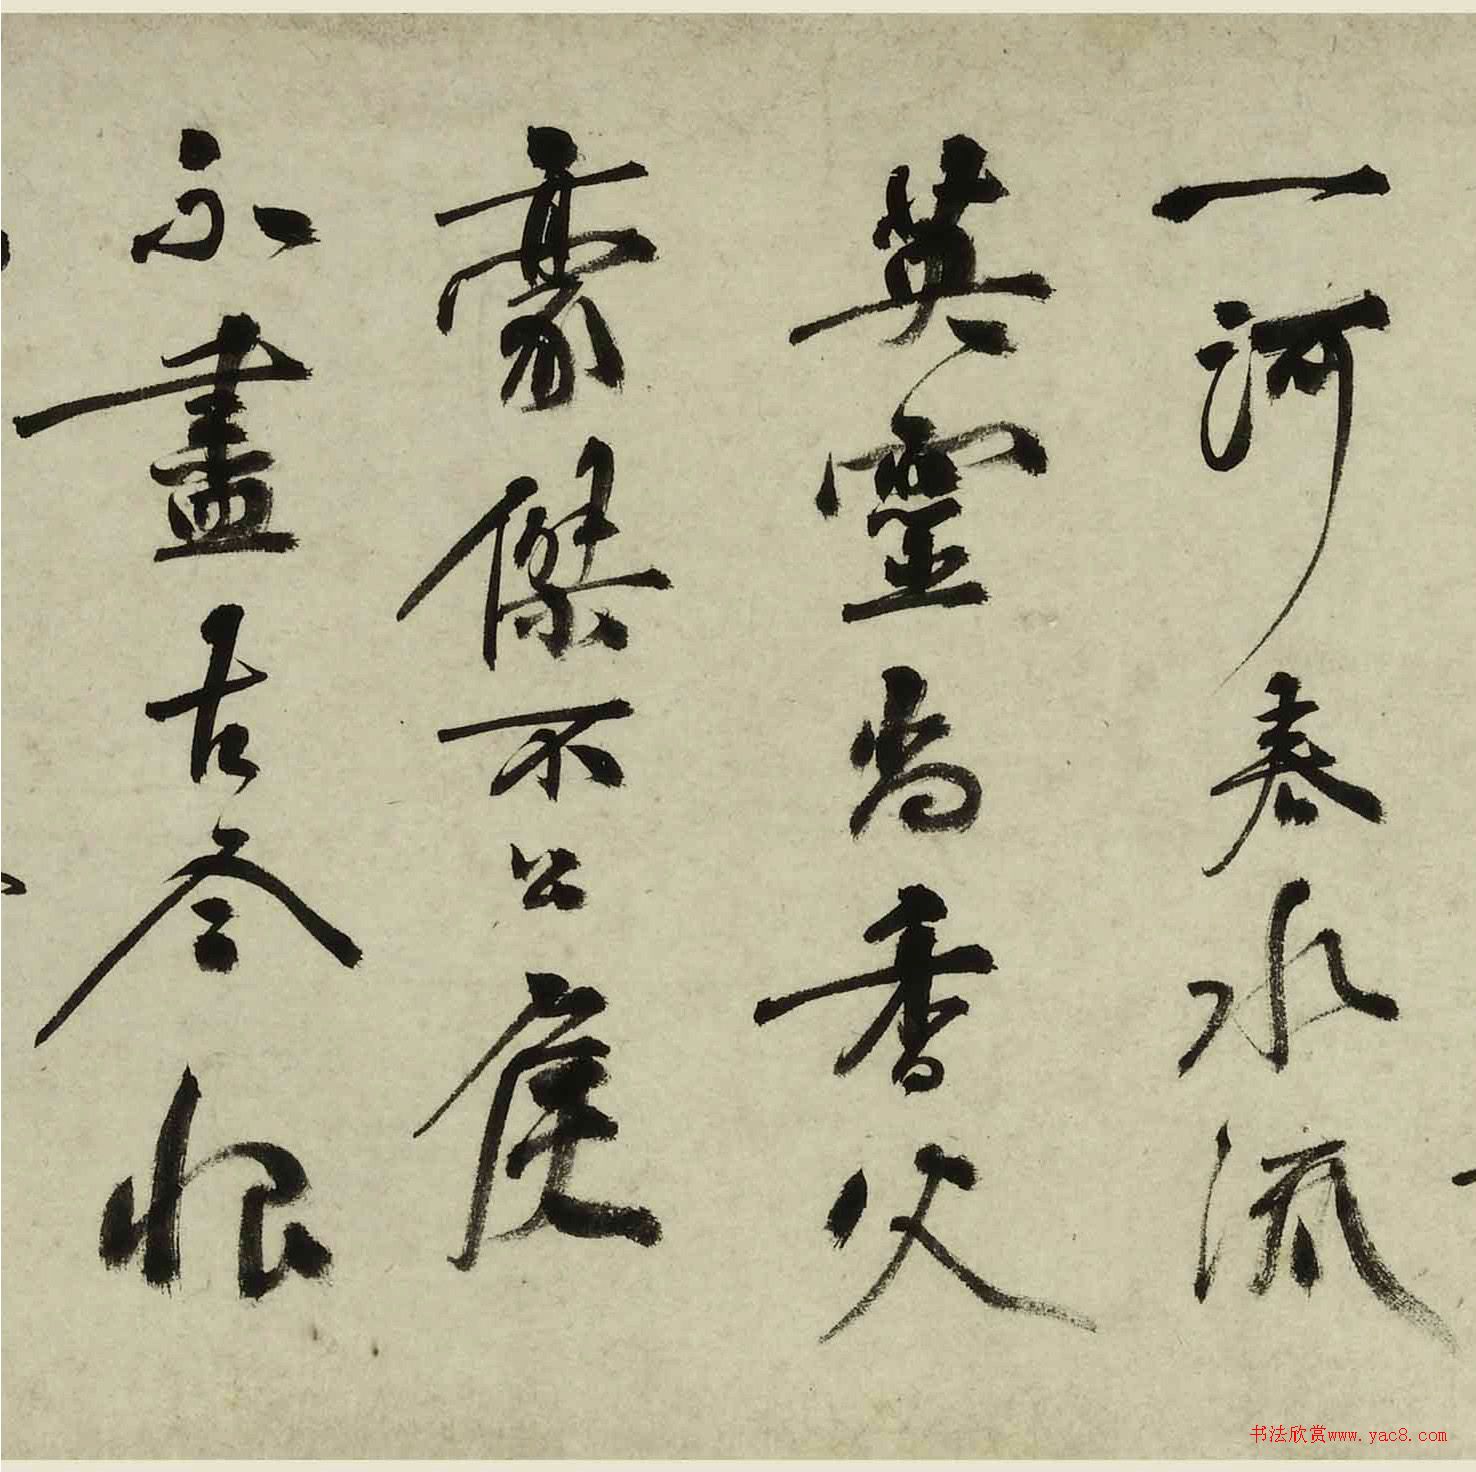 一河春水流
英靈尚香火
豪傑不公侯
不盡古今恨
书法欣赏www.yac8.com